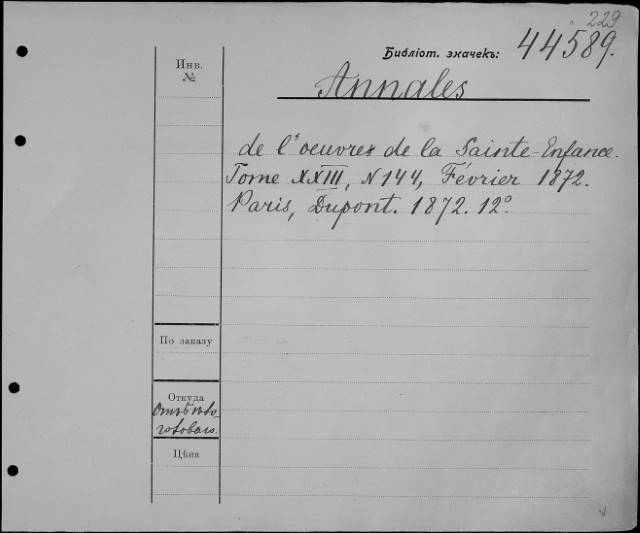 229
Библіот. значекъ: 44589.
Инв.
№
Annales
de l'oeuvres de la Sainte-Enfance.
Tome XXIII, N 144, Février 1872.
Paris, Dupont. 1872. 12°.
По заказу
Откуда
Цѣна